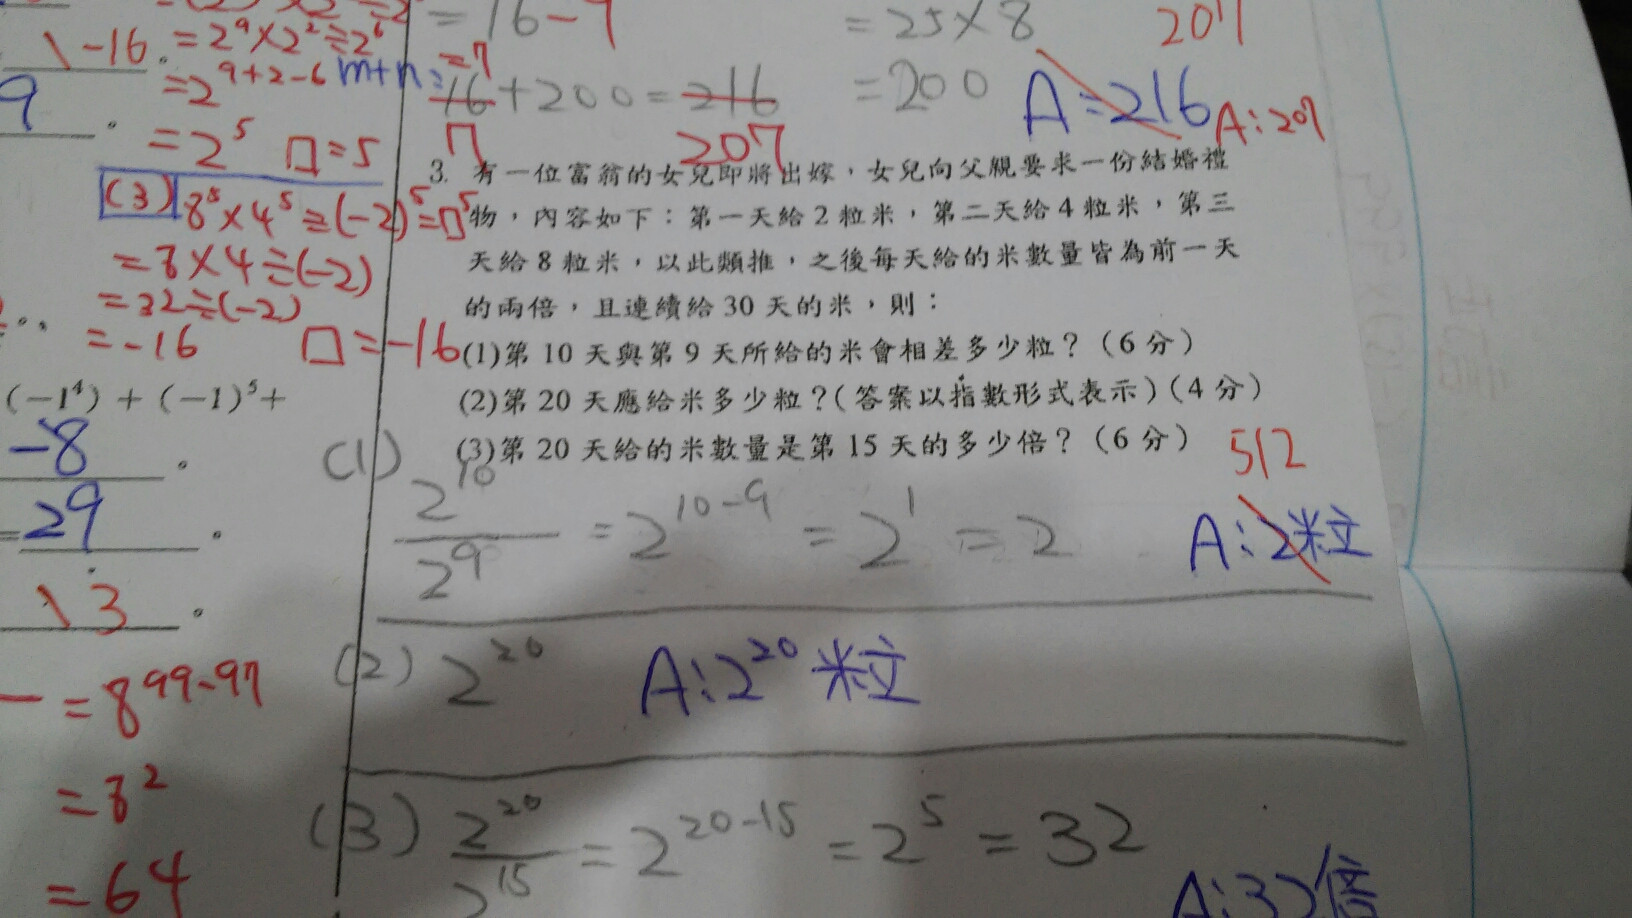 \-16。
9。
=2⁹×2²÷2⁶
=2⁹⁺²⁻⁶ m+n=
=2⁵ □=5
(3) 8⁵×4⁵÷(-2)⁵=□⁵
=8×4÷(-2)
=32÷(-2)
=-16 □=-16
(-1⁴)+(-1)⁵+
-8。
=29。
\3。
=8⁹⁹⁻⁹⁷
=8²
=64
=16-9
=7
16+200=216
7 207
=25×8
=200
207
A=216
A:207
3. 有一位富翁的女兒即將出嫁,女兒向父親要求一份結婚禮
物,內容如下:第一天給2粒米,第二天給4粒米,第三
天給8粒米,以此類推,之後每天給的米數量皆為前一天
的兩倍,且連續給30天的米,則:
(1)第10天與第9天所給的米會相差多少粒?(6分)
(2)第20天應給米多少粒?(答案以指數形式表示)(4分)
(3)第20天給的米數量是第15天的多少倍?(6分)
(1) 2¹⁰/2⁹=2¹⁰⁻⁹=2¹=2
512
A:2粒
(2) 2²⁰ A:2²⁰粒
(3) 2²⁰/2¹⁵=2²⁰⁻¹⁵=2⁵=32
A:32倍